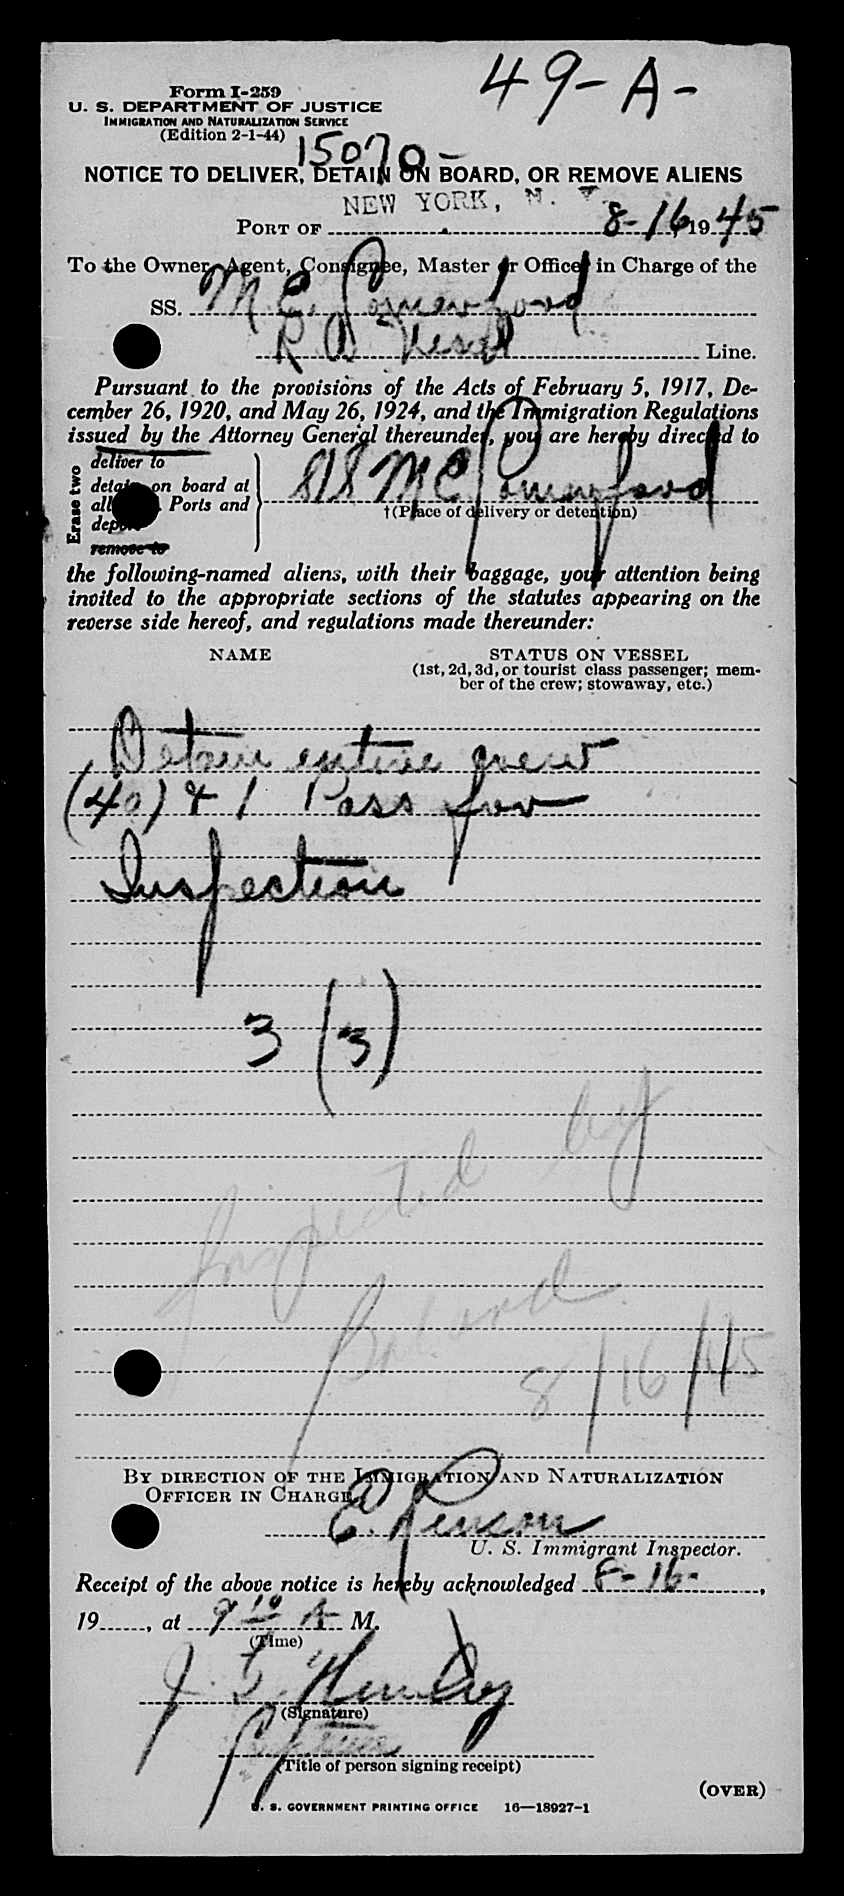 49-A-
Form I-259
U. S. DEPARTMENT OF JUSTICE
IMMIGRATION AND NATURALIZATION SERVICE
(Edition 2-1-44)
15070-
NOTICE TO DELIVER, DETAIN ON BOARD, OR REMOVE ALIENS
NEW YORK, N. Y
PORT OF 8-16, 1945
To the Owner, Agent, Consignee, Master or Officer in Charge of the
SS. M. E.
Line.
Pursuant to the provisions of the Acts of February 5, 1917, De-
cember 26, 1920, and May 26, 1924, and the Immigration Regulations
issued by the Attorney General thereunder, you are hereby directed to
Erase two
deliver to
detain on board at
all Ports and
deport
remove to
SS M E
†(Place of delivery or detention)
the following-named aliens, with their baggage, your attention being
invited to the appropriate sections of the statutes appearing on the
reverse side hereof, and regulations made thereunder:
NAME STATUS ON VESSEL
(1st, 2d, 3d, or tourist class passenger; mem-
ber of the crew; stowaway, etc.)
Detain entire crew
(40) & 1 Pass for
Inspection
3 (3)
Inspected by
8/16/45
BY DIRECTION OF THE IMMIGRATION AND NATURALIZATION
OFFICER IN CHARGE
E.
U. S. Immigrant Inspector.
Receipt of the above notice is hereby acknowledged 8-16-,
19, at 9 10 A M.
(Time)
J.
(Signature)
Captain
(Title of person signing receipt)
(OVER)
U. S. GOVERNMENT PRINTING OFFICE 16—18927-1